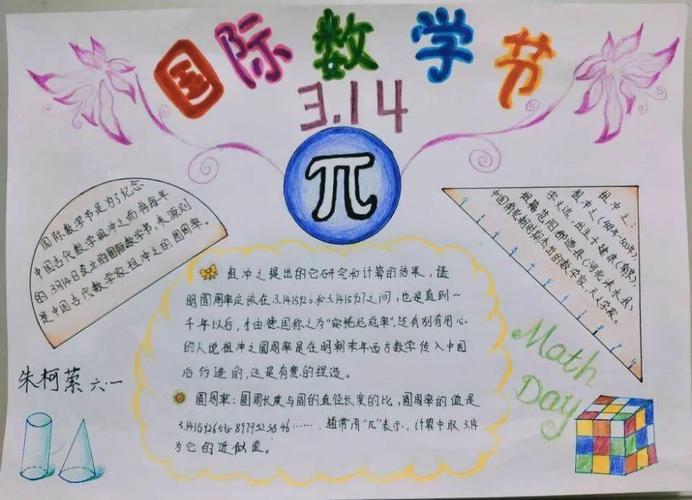 国际数学节
3.14
π
国际数学节是为了纪念
中国古代数学祖冲之而将每年
的3月14日设立的国际数学节,来源则
是中国古代数学家祖冲之的圆周率。
祖冲之:
祖冲之(429年-500年),
字文远,出生于建康(南京),
祖籍范阳郡遒县(河北涞水县),
中国南北朝时期杰出的数学家、天文学家。
祖冲之提出的它研究和计算的结果,证
明圆周率应该在3.1415926和3.1415927之间,也是直到一
千年以后,才由德国称之为“ ”,还有别有用心
的人说祖冲之圆周率是在明朝末年西方数学传入中国
后伪造的,这是有意的捏造。
圆周率:圆周长度与圆的直径长度的比,圆周率的值是
3.14159265358979323846……,通常用“π”表示,计算中取3.14
为它的近似值。
朱柯萦 六·一
Math
Day